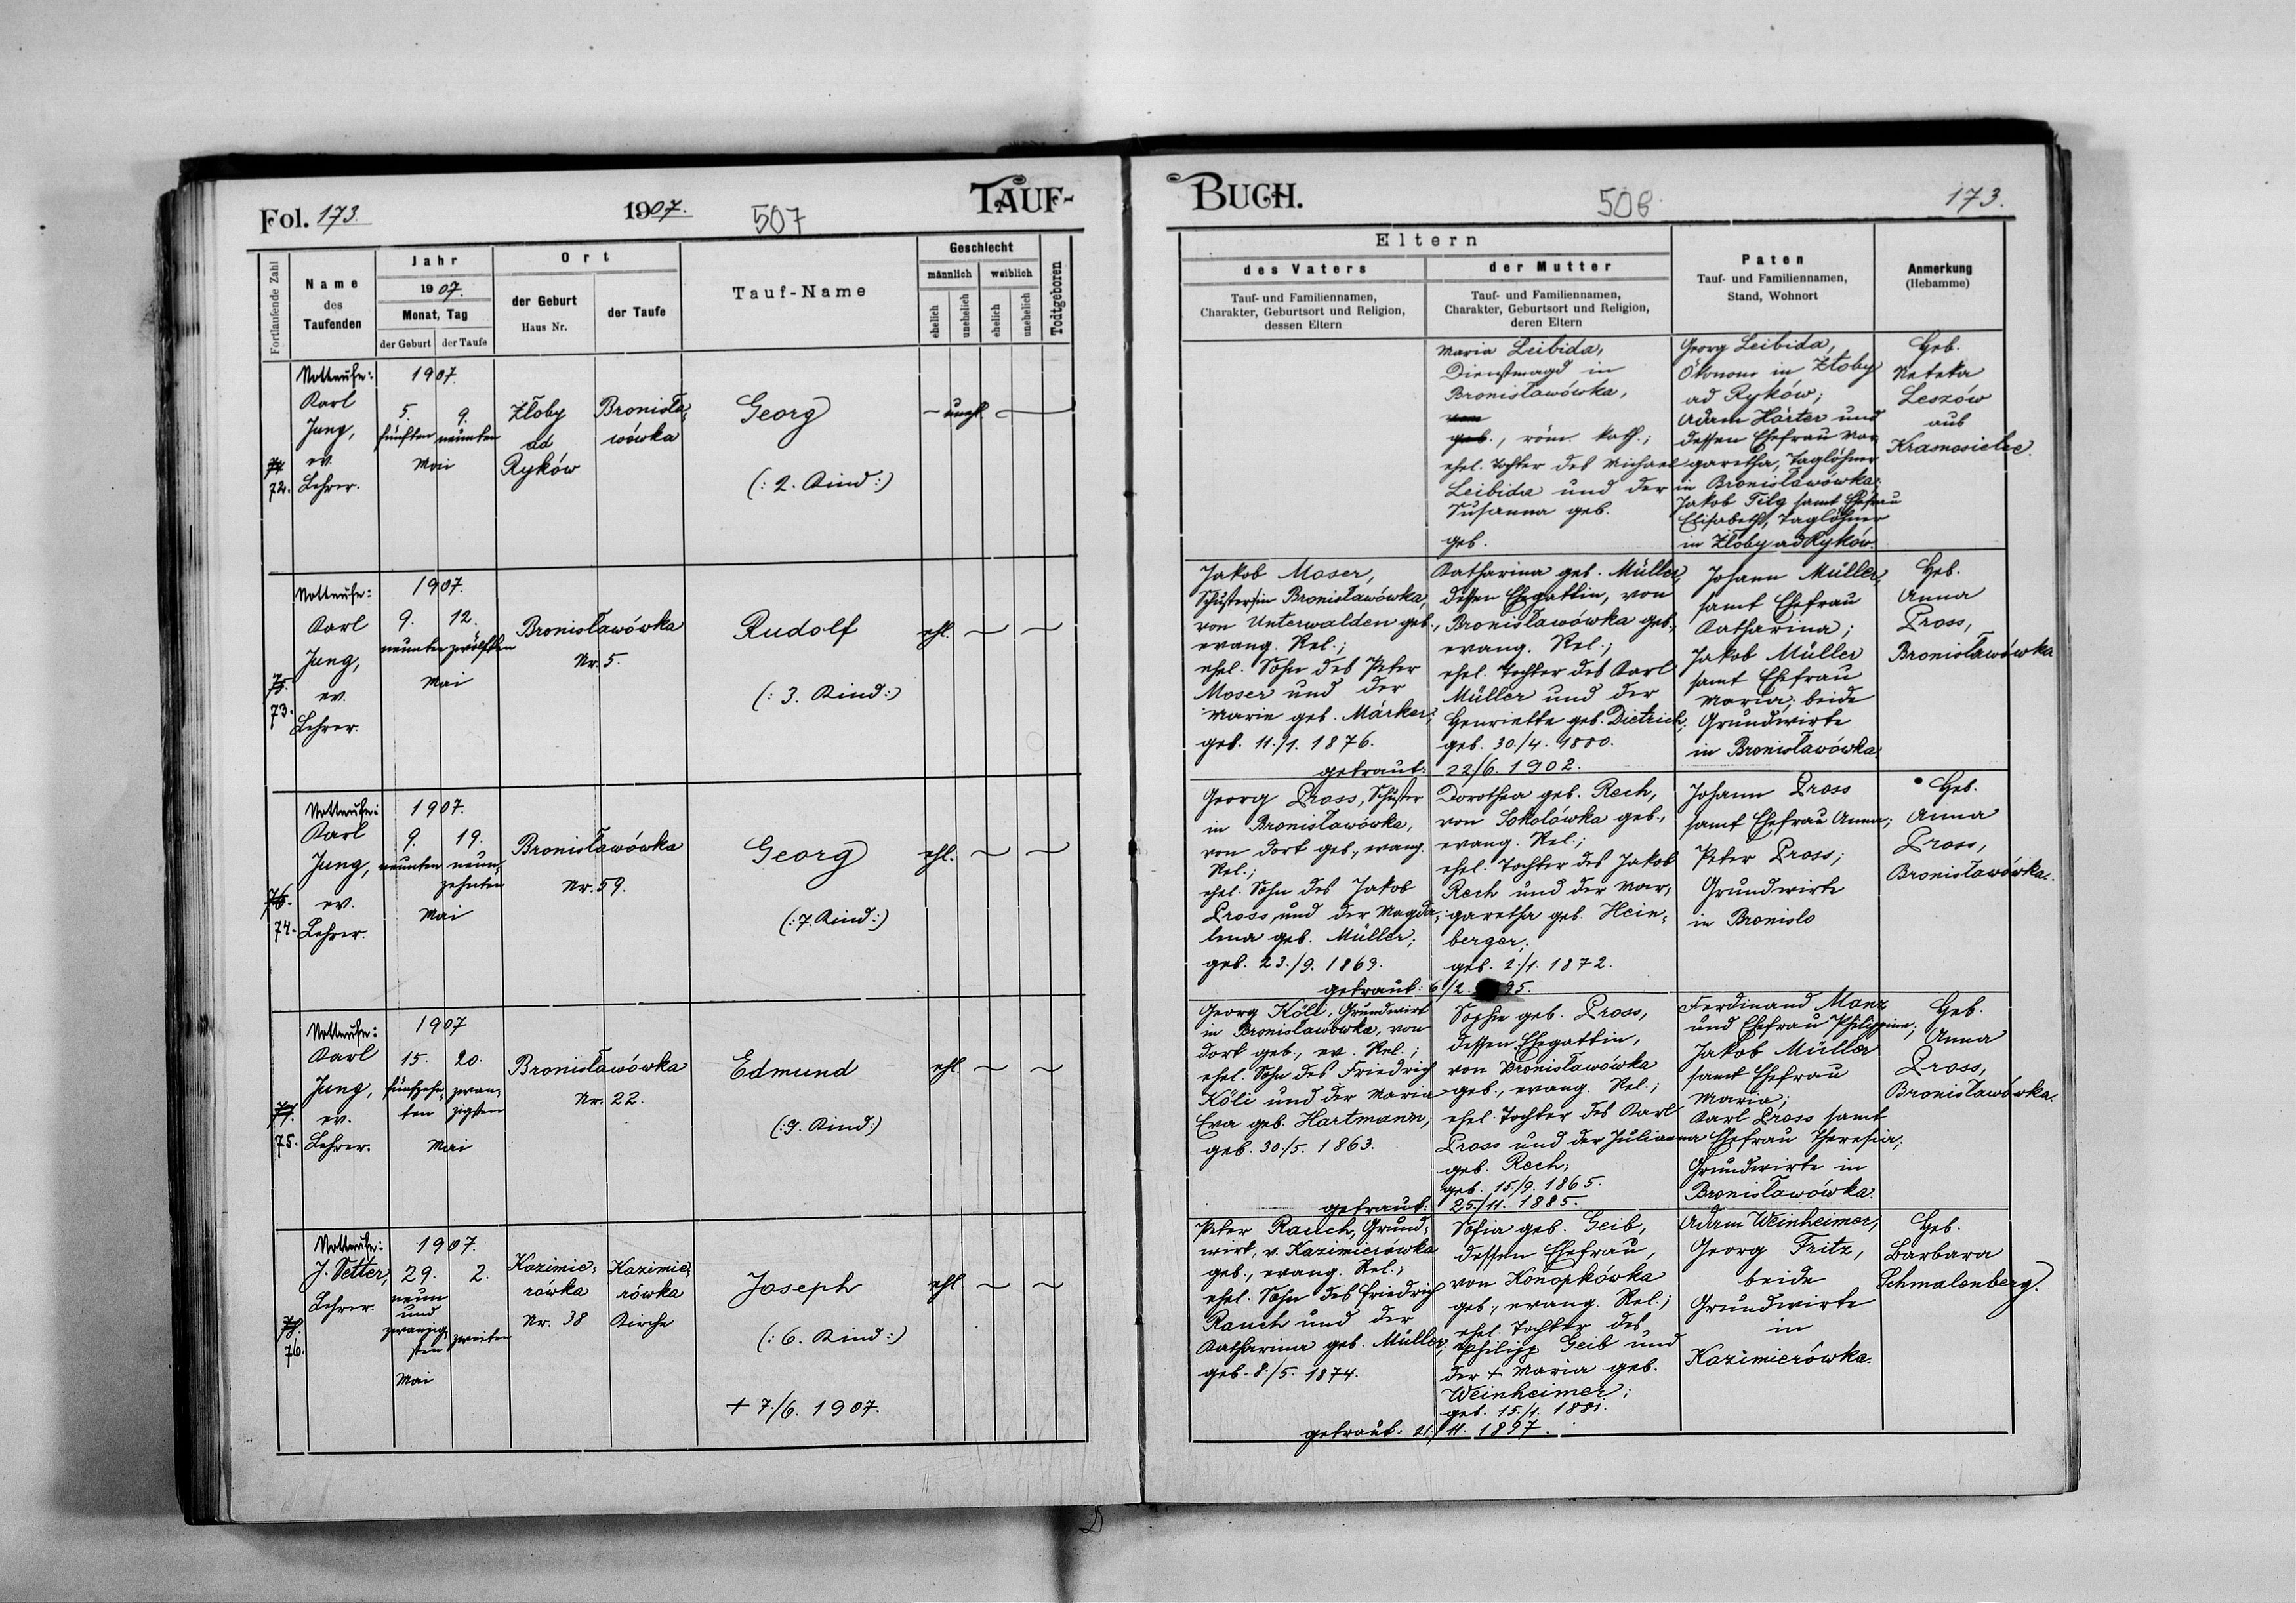 Fol. 173.
1907.
507
TAUF-
Fortlaufende Zahl
Name
des
Taufenden
Jahr
1907.
Monat, Tag
der Geburt
der Taufe
Ort
der Geburt
Haus Nr.
der Taufe
Tauf-Name
Geschlecht
männlich
weiblich
ehelich
unehelich
ehelich
unehelich
Todtgeboren
74
72.
Nottaufe:
Karl
Jung,
ev.
Lehrer.
1907.
5. 9.
fünften neunten
Mai
Żłoby
ad
Ryków
Bronisła-
wówka
Georg
(: 2. Kind :)
unehl.
75.
73.
Nottaufe:
Karl
Jung,
ev.
Lehrer.
1907.
9. 12.
neunten zwölften
Mai
Bronisławówka
Nr. 5.
Rudolf
(: 3. Kind :)
ehl.
76.
74.
Nottaufe:
Karl
Jung,
ev.
Lehrer.
1907.
9. 19.
neunten neun-
zehnten
Mai
Bronisławówka
Nr. 59.
Georg
(: 7. Kind :)
ehl.
77.
75.
Nottaufe:
Karl
Jung,
ev.
Lehrer.
1907
15. 20.
fünfzehn- zwan-
ten zigsten
Mai
Bronisławówka
Nr. 22.
Edmund
(: 9. Kind :)
ehl.
78.
76.
Nottaufe:
J. Vetter,
Lehrer.
1907.
29. 2.
neun
und
zwanzig-
sten zweiten
Mai
Kazimie-
rówka
Nr. 38
Kazimie-
rówka
Kirche
Joseph
(: 6. Kind :)
† 7./6. 1907.
ehl.
BUCH.
508
173.
Eltern
des Vaters
Tauf- und Familiennamen,
Charakter, Geburtsort und Religion,
dessen Eltern
der Mutter
Tauf- und Familiennamen,
Charakter, Geburtsort und Religion,
deren Eltern
Paten
Tauf- und Familiennamen,
Stand, Wohnort
Anmerkung
(Hebamme)
Maria Leibida,
Dienstmagd in
Bronisławówka,
von
geb., röm. kath.;
ehel. Tochter des Michael
Leibida und der
Susanna geb.
geb.
Georg Leibida,
Ökonom in Żłoby
ad Ryków;
Adam Härter und
dessen Ehefrau Mar-
garetha, Taglöhner
in Bronisławówka;
Jakob Tilg samt Ehefrau
Elisabeth, Taglöhner
in Żłoby ad Ryków.
Heb.
Nateka
Leszów
aus
Kramosielce.
Jakob Moser,
Schuster in Bronisławówka,
von Unterwalden geb.,
evang. Rel.;
ehel. Sohn des Peter
Moser und der
Marie geb. Märker;
geb. 11./1. 1876.
Katharina geb. Müller,
dessen Ehegattin, von
Bronisławówka geb.,
evang. Rel.;
ehel. Tochter des Karl
Müller und der
Henriette geb. Dietrich;
geb. 30./4. 1880.
getraut: 22./6. 1902.
Johann Müller,
samt Ehefrau
Katharina;
Jakob Müller
samt Ehefrau
Maria; beide
Grundwirte
in Bronisławówka.
Heb.
Anna
Pross,
Bronisławówka
Georg Pross, Schuster
in Bronisławówka,
von dort geb., evang.
Rel.;
ehel. Sohn des Jakob
Pross und der Magda-
lena geb. Müller;
geb. 23./9. 1869.
Dorothea geb. Rech,
von Sokolówka geb.,
evang. Rel.;
ehel. Tochter des Jakob
Rech und der Mar-
garetha geb. Hein-
berger;
geb. 2./1. 1872.
getraut: 6./2. 95.
Johann Pross
samt Ehefrau Anna;
Peter Pross;
Grundwirte
in Bronislo
Heb.
Anna
Pross,
Bronisławówka.
Georg Köli, Grundwirt
in Bronisławówka, von
dort geb., ev. Rel.;
ehel. Sohn des Friedrich
Köli und der Maria
Eva geb. Hartmann;
geb. 30./5. 1863.
Sophie geb. Pross,
dessen Ehegattin,
von Bronisławówka
geb., evang. Rel.;
ehel. Tochter des Karl
Pross und der Julianna
geb. Rech;
geb. 15./9. 1865.
getraut: 25./11. 1885.
Ferdinand Manz
und Ehefrau Philippine;
Jakob Müller
samt Ehefrau
Maria;
Karl Pross samt
Ehefrau Theresia;
Grundwirte in
Bronisławówka.
Heb.
Anna
Pross,
Bronisławówka.
Peter Rauch, Grund-
wirt, v. Kazimierówka
geb., evang. Rel.;
ehel. Sohn des Friedrich
Rauch und der
Katharina geb. Müller;
geb. 8./5. 1874.
Sofia geb. Geib,
dessen Ehefrau,
von Konopkówka
geb., evang. Rel.;
ehel. Tochter des
Philipp Geib und
der † Maria geb.
Weinheimer;
geb. 15./1. 1881.
getraut: 21./11. 1897.
Adam Weinheimer,
Georg Fritz,
beide
Grundwirte
in
Kazimierówka.
Heb.
Barbara
Schmalenberg.